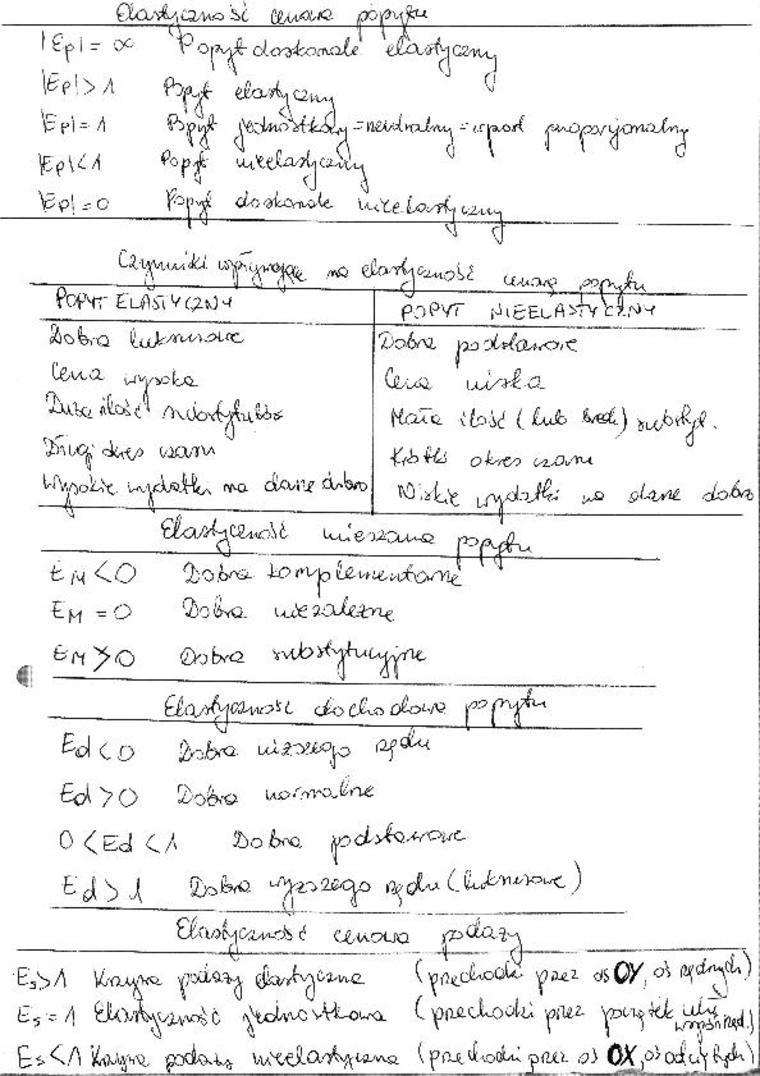 Elastyczność cenowa popytu
|Ep| = ∞ Popyt doskonale elastyczny
|Ep| > 1 Popyt elastyczny
|Ep| = 1 Popyt jednostkowy = neutralny = wprost proporcjonalny
|Ep| < 1 Popyt nieelastyczny
|Ep| = 0 Popyt doskonale nieelastyczny
Czynniki wpływające na elastyczność cenową popytu
POPYT ELASTYCZNY POPYT NIEELASTYCZNY
Dobra luksusowe Dobra podstawowe
Cena wysoka Cena niska
Duża ilość substytutów Mała ilość (lub brak) substyt.
Długi okres czasu Krótki okres czasu
Wysokie wydatki na dane dobro Niskie wydatki na dane dobro
Elastyczność mieszana popytu
EM < 0 Dobra komplementarne
EM = 0 Dobra niezależne
EM > 0 Dobra substytucyjne
Elastyczność dochodowa popytu
Ed < 0 Dobra niższego rzędu
Ed > 0 Dobra normalne
0 < Ed < 1 Dobra podstawowe
Ed > 1 Dobra wyższego rzędu (luksusowe)
Elastyczność cenowa podaży
Es > 1 Krzywa podaży elastyczna (przechodzi przez oś OY, oś rzędnych)
Es = 1 Elastyczność jednostkowa (przechodzi przez początek ukł. współrzęd.)
Es < 1 Krzywa podaży nieelastyczna (przechodzi przez oś OX, oś odciętych)